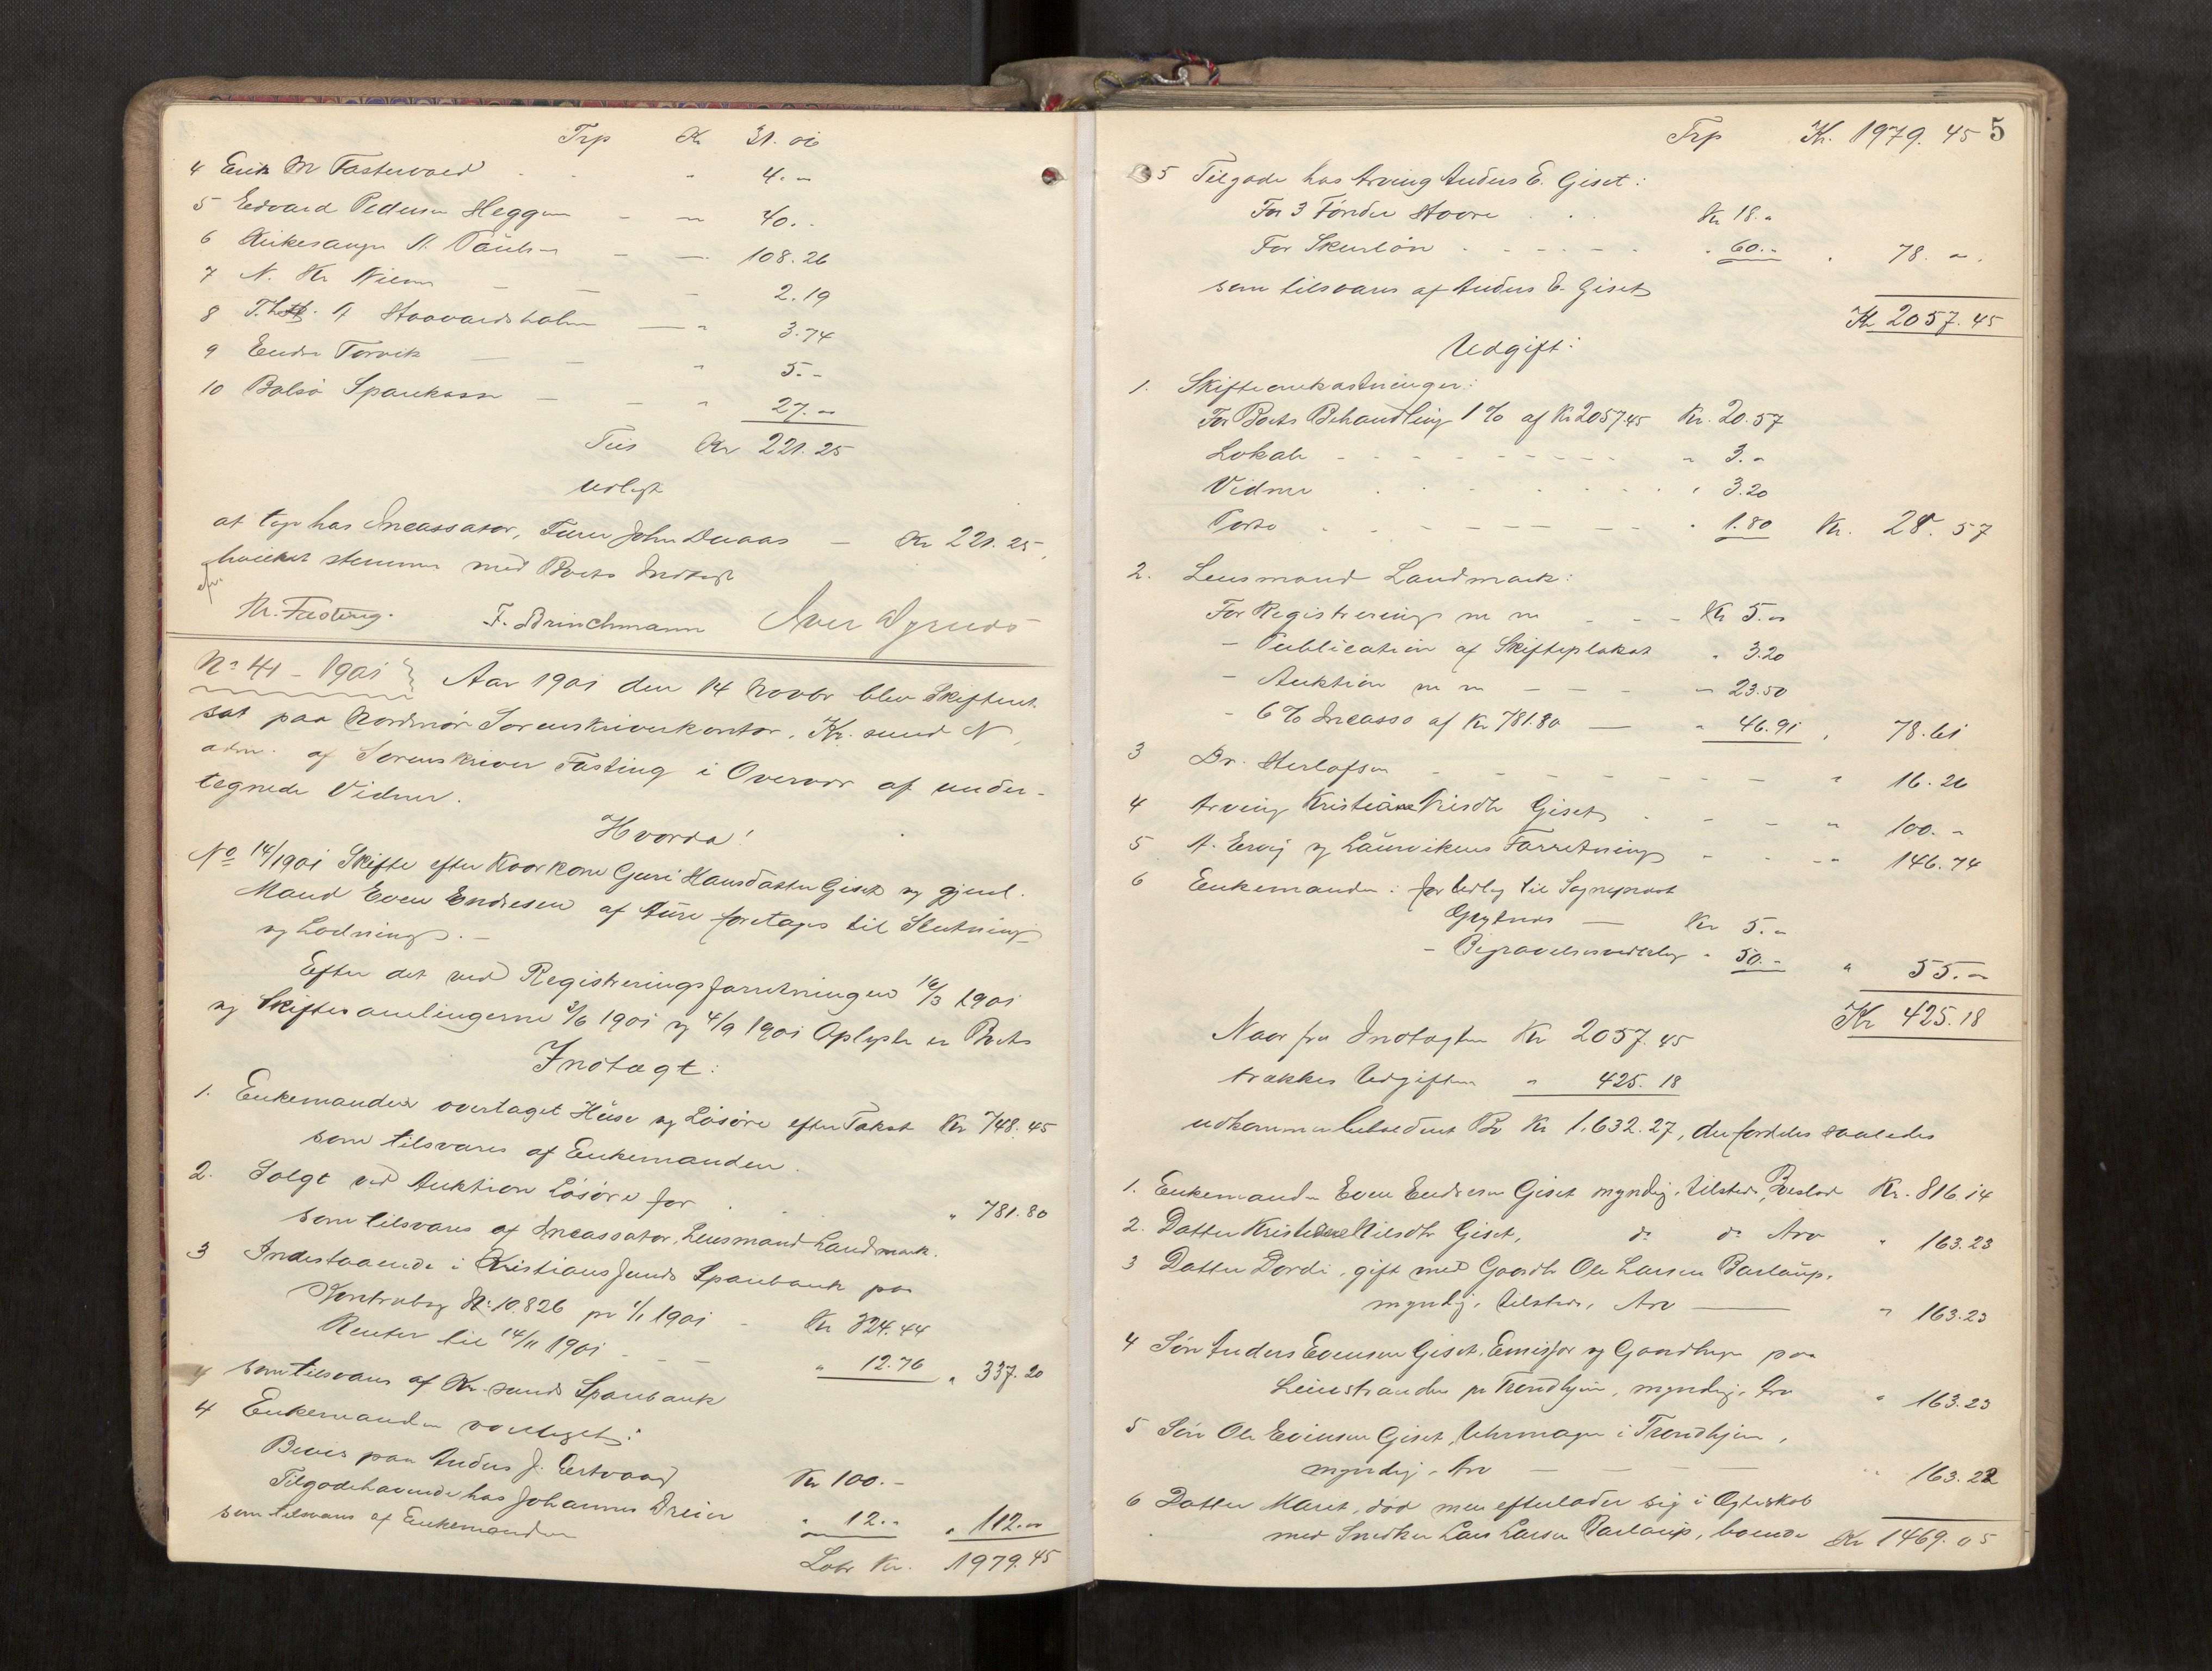 Trp Kr 31.06
4 Erik M Fastervold " 4.-
5 Edvard Pedersen Heggem - - 40.-
6 Kirkesanger A. Paulsen - - 108.26
7 N. Kr Nilsen - - - 2.19
8 A Havardsholm - " 3.74
9 Endre Torvik - - " 5.-
10 Bolsø Sparekasse - - " 27.-
Tils Kr 221.25
Udlagt
at tage hos Incassator, Furer John Duaas - Kr 221.25,
hvilket stemmer med Boets Indtægt
Th. Fasting. F. Brinchmann Iver
No 41 - 1901 } Aar 1901 den 14 Novbr blev Skifteret
sat paa Nordmør Sorenskriverkontor, Kr.sund N,
adm. af Sorenskriver Fasting i Overvær af under-
tegnede Vidner.
Hvorda!
No 14/1901 Skifte efter Kaarkone Guri Hansdatter Giset og gjenl.
Mand Even Endresen af Aure foretages til Slutning
og Lodning. -
Efter det ved Registreringsforretningen 16/3 1901
og Skiftesamlingerne 3/6 1901 og 4/9 1901 Oplyste er Boets
Indtægt:
1. Enkemanden overtaget Huse og Løsøre efter Takst Kr 748.45
som tilsvares af Enkemanden.
2. Solgt ved Auktion Løsøre for . . " 781.80
som tilsvares af Incassator, Lensmand Landmark.
3 Indestaaende i Kristianssunds Sparebank paa
Kontrabog No 10.826 pr 1/1 1901 - Kr 324.44
Renter til 14/11 1901 - - - " 12.76 " 337.20
som tilsvares af Kr.sunds Sparebank
4 Enkemanden vedtaget:
Bevis paa Anders J. Eertvaag Kr 100.-
Tilgodehavende hos Johannes Dreier " 12.- " 112.-
som tilsvares af Enkemanden
Labr Kr. 1979.45
Trp Kr. 1979.45 5
5 Tilgode hos Arving Anders E. Giset:
For 3 Tønder Havre . . Kr 18.-
For Skeuløn - - - - - " 60.- " 78.-
som tilsvares af Anders E. Giset
Kr 2057.45
Udgift:
1. Skifteomkostninger:
For Boets Behandling 1% af Kr 2057.45 Kr. 20.57
Lokale - - - - - - - - - " 3.-
Vidner . . . . . . " 3.20
Porto - - - - - - - - " 1.80 Kr. 28.57
2. Lensmand Landmark:
For Registrering m m - - - Kr 5.-
- Publication af Skifteplakat " 3.20
- Auktion m m - - - - 23.50
- 6% Incasso af Kr 781.80 - " 46.91 " 78.61
3 Dr. Herlofsen - - - - - - - " 16.26
4 Arving Kristiane Nilsdtr Giset - - - " 100.-
5 A. Ervig og Laurvikens Forretning - - - " 146.74
6 Enkemanden: for Udlæg til Sogneprest
Grytnes - Kr 5.-
- Begravelsesvederlag " 50.- " 55.-
Kr 425.18
Naar fra Indtægten Kr 2057.45
trækkes Udgiften " 425.18
udkommer beholdent Bo Kr 1.632.27, der fordeles saaledes
1. Enkemanden Even Endresen Giset myndig, tilstede, Boslod Kr. 816.14
2. Datter Kristiane Nilsdtr Giset, do do Arv " 163.23
3 Datter Dordi, gift med Gaardbr Ole Larsen Barlaup,
myndig, tilstede, Arv - " 163.23
4 Søn Anders Evensen Giset, Emisjær og Gaardbruger paa
Leinstranden pr Trondhjem, myndig, Arv " 163.23
5 Søn Ole Evensen Giset, Uhrmager i Trondhjem,
myndig, Arv - - - " 163.22
6 Datter Marit, død men efterlader sig i Ægteskab
med Snedker Lars Larsen Barlaup, boende Kr 1469.05